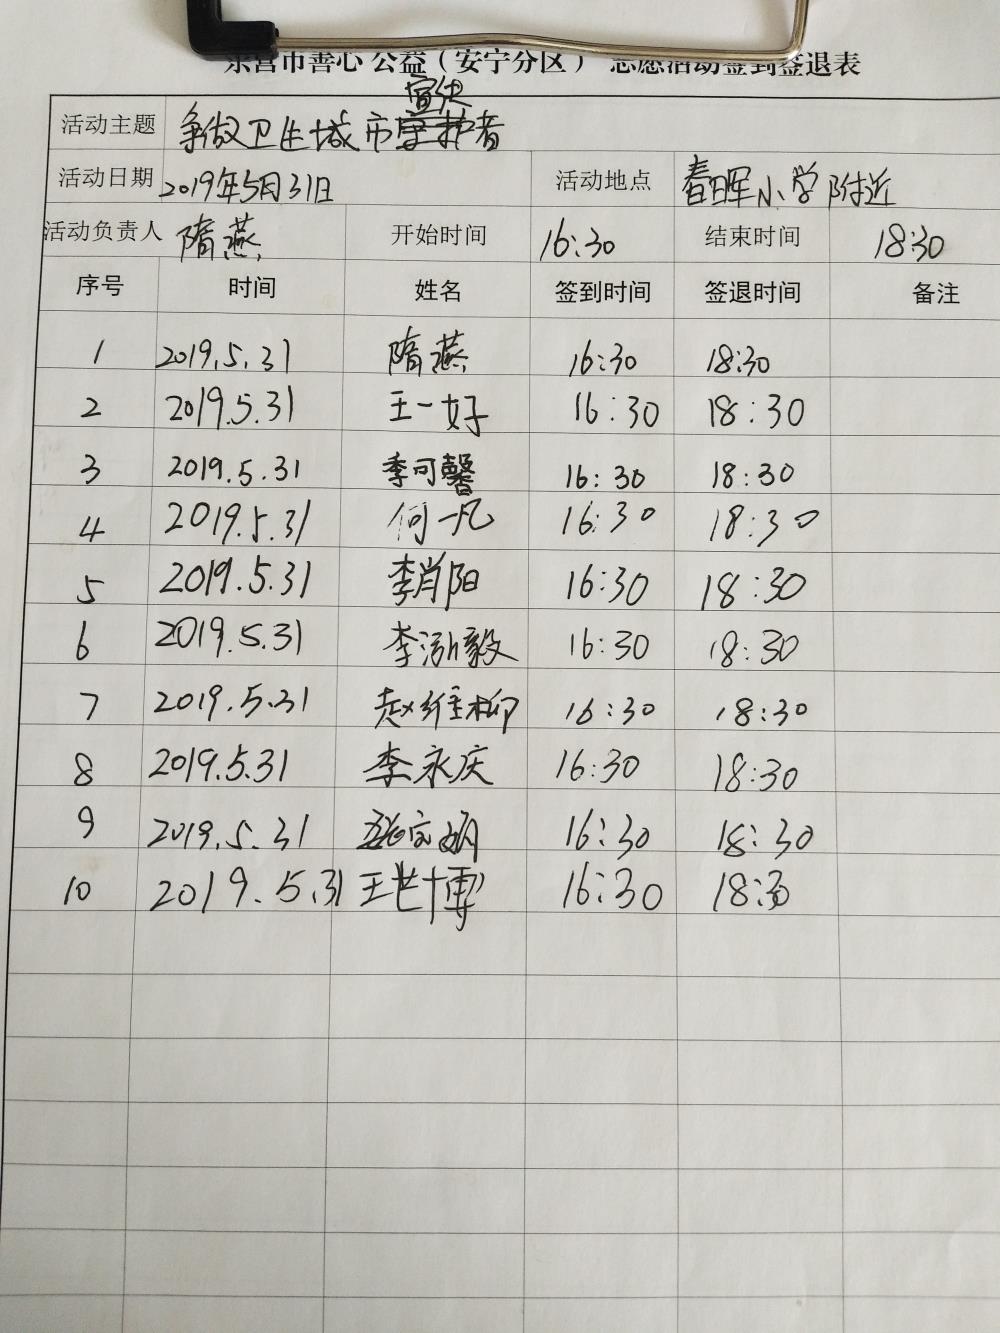 东营市善心 公益（安宁分区） 志愿活动签到签退表
宣传
活动主题 争做卫生城市守护者
活动日期 2019年5月31日 活动地点 春晖小学附近
活动负责人 隋燕 开始时间 16:30 结束时间 18:30
序号 时间 姓名 签到时间 签退时间 备注
1 2019.5.31 隋燕 16:30 18:30
2 2019.5.31 王一好 16:30 18:30
3 2019.5.31 季可馨 16:30 18:30
4 2019.5.31 何一凡 16:30 18:30
5 2019.5.31 李肖阳 16:30 18:30
6 2019.5.31 李泓毅 16:30 18:30
7 2019.5.31 赵维柳 16:30 18:30
8 2019.5.31 李永庆 16:30 18:30
9 2019.5.31 16:30 18:30
10 2019.5.31 王世博 16:30 18:30